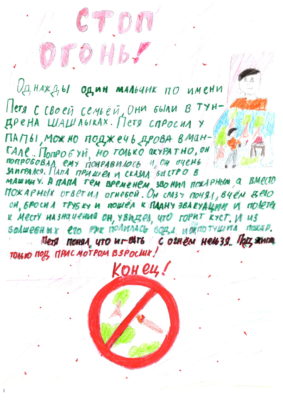 СТОП
ОГОНЬ!
Однажды один мальчик по имени
Петя с своей семьёй, они были в тун-
дрена шашлыках. Петя спросил у
папы, можно поджечь дрова в ман-
гале. Попробуй но только акуратно, он
попробовал ему понравилось и он очень
заигрался. Папа пришел и сказал быстро в
машину. А папа тем временем, звонил пожарным, а вместо
пожарных ответил огневой. Он сразу понял, в чём дело
он, бросил трубку и пошёл к плану эвакуации и полетел
к месту назначения он, увидел, что горит куст, и из
волшебных его рук полилась вода и потушила пожар.
Петя понял, что играть с огнём нельзя.
только под присмотром взрослых!
Конец!